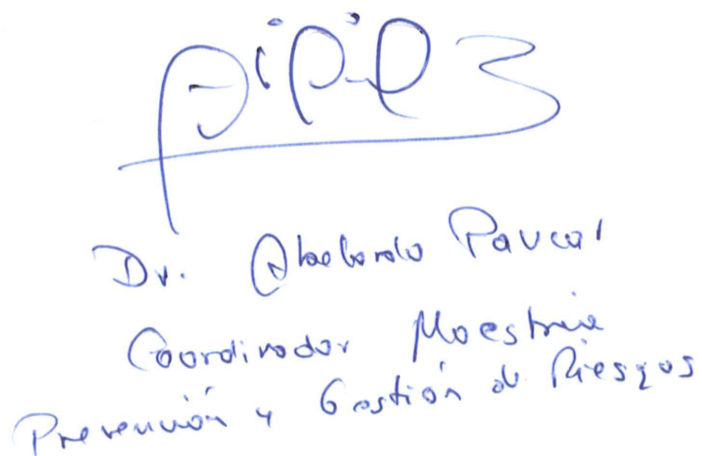 Dr. Abelardo Paucar
Coordinador Maestria
Prevención y Gestión de Riesgos